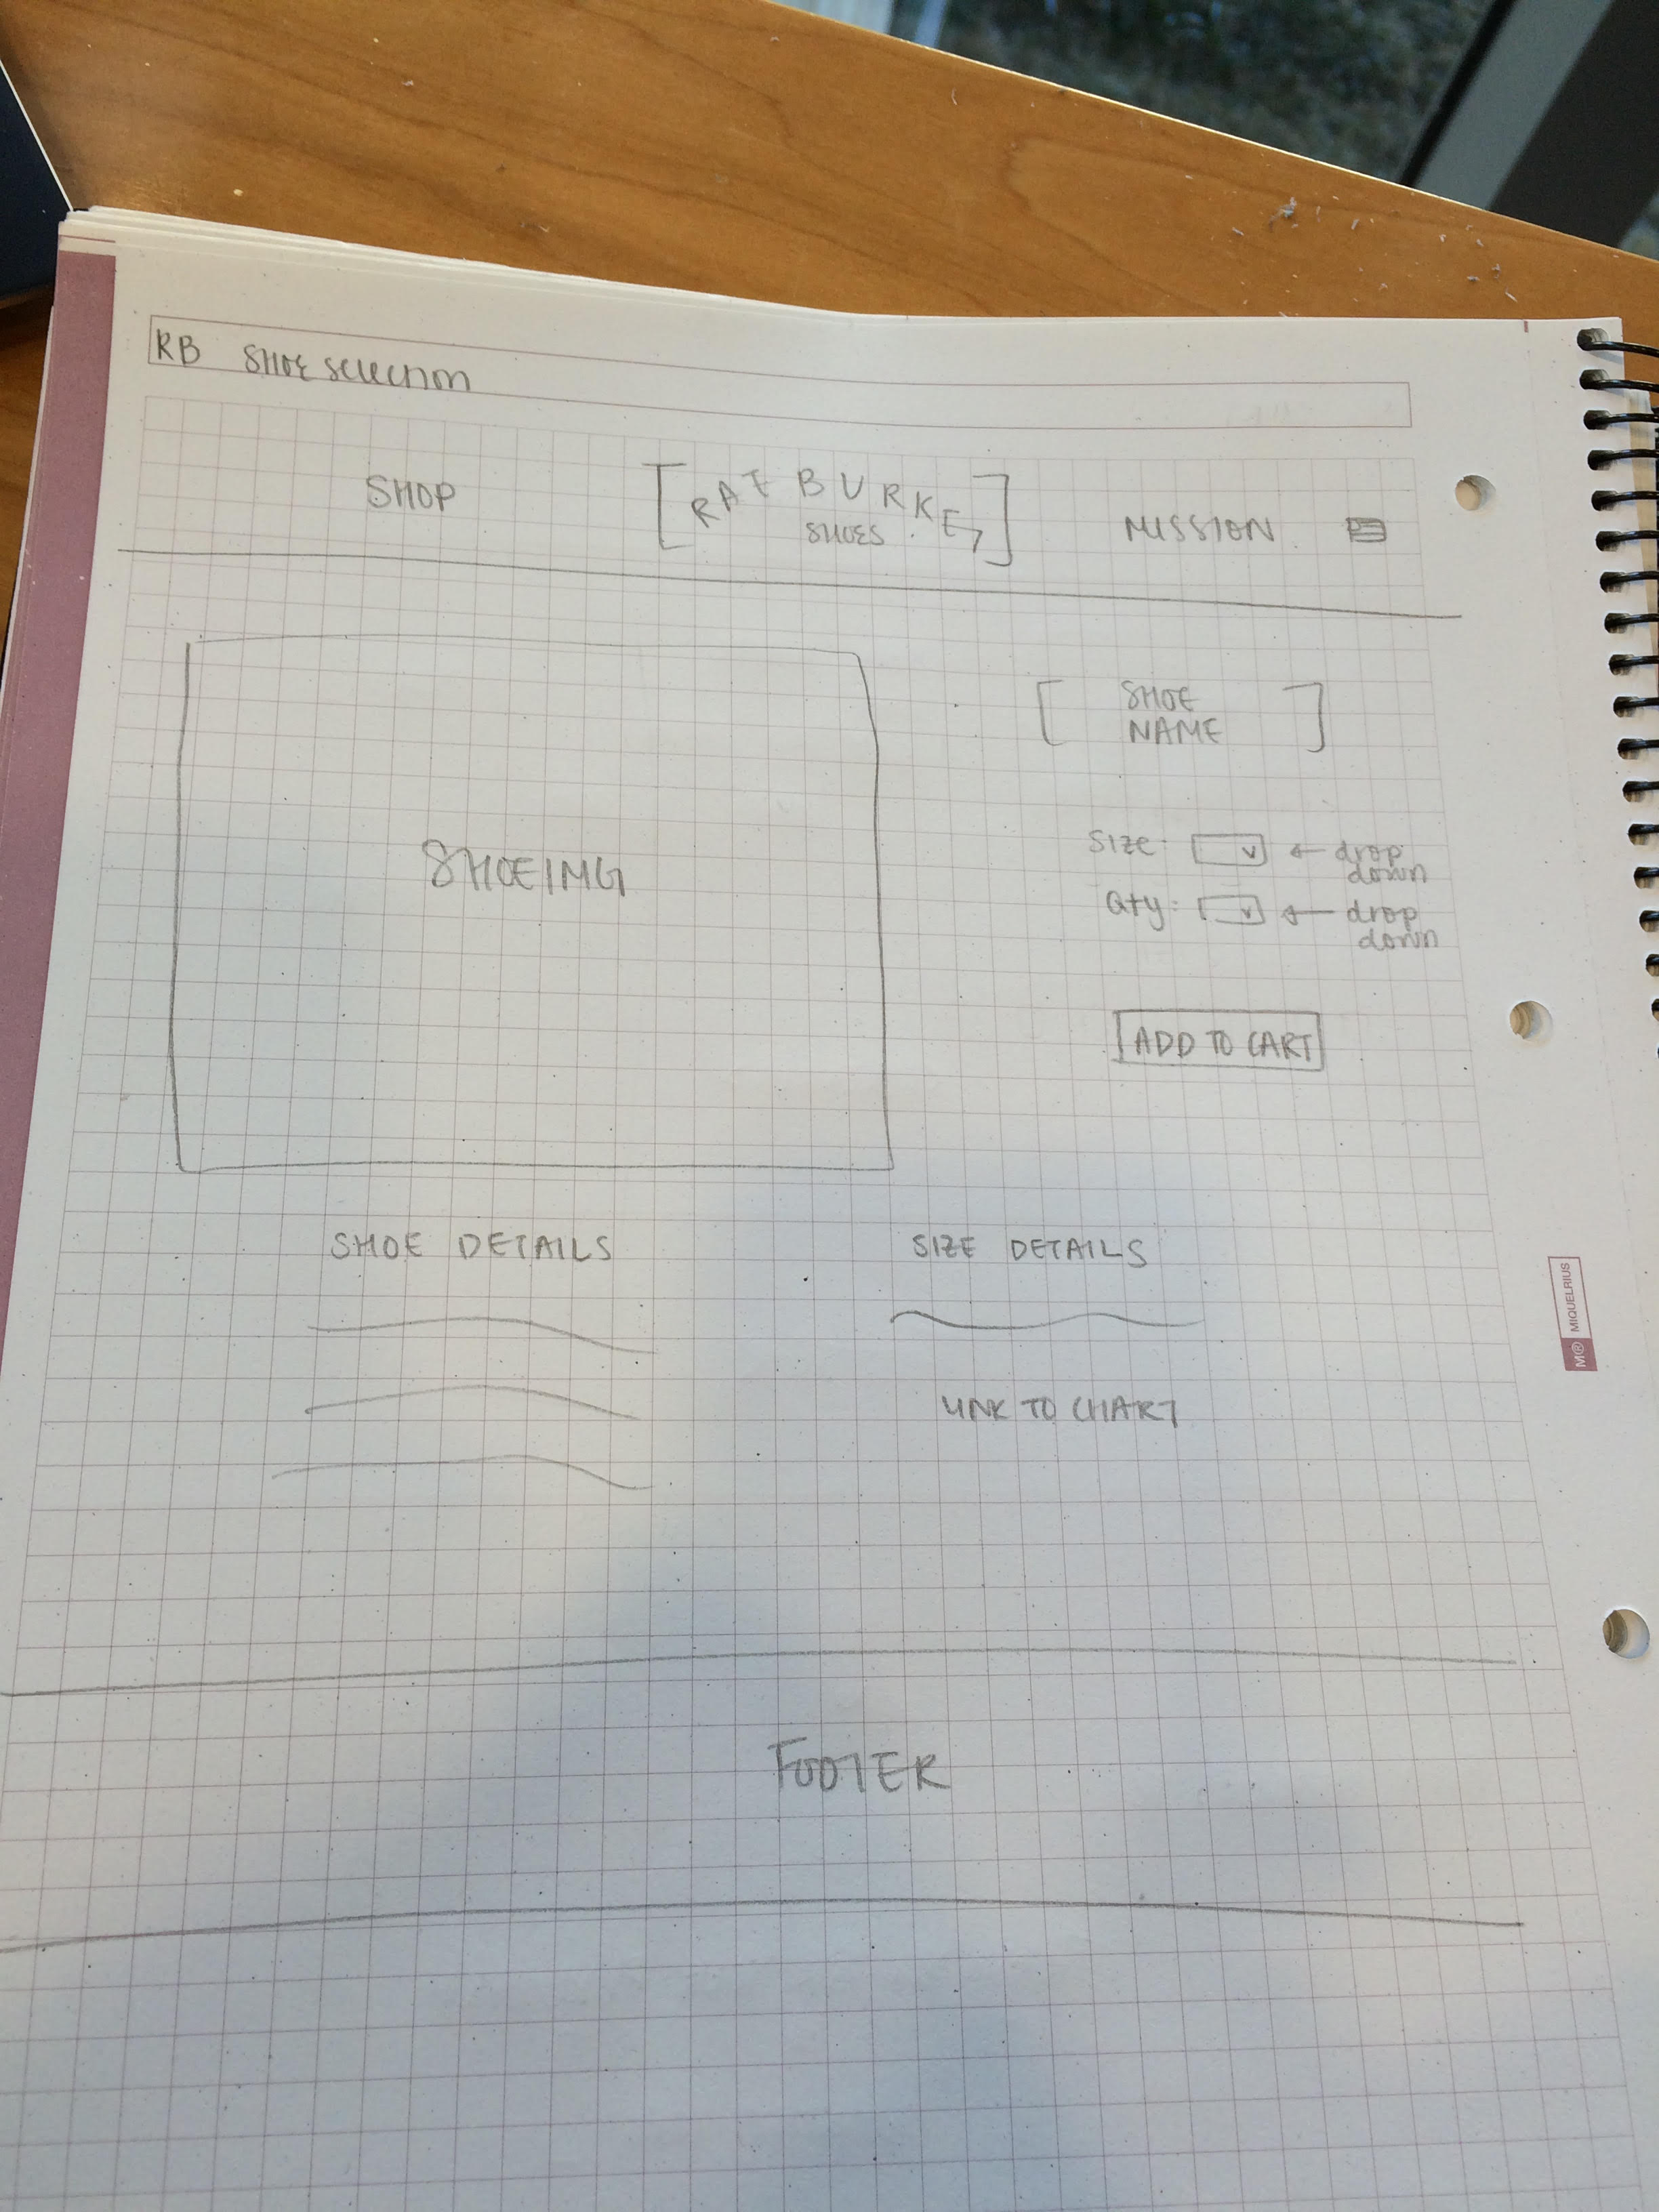 RB SHOE SELECTION
SHOP
RAE BURKE
SHOES
MISSION
SHOE
NAME
SHOE IMG
Size: v ← drop
down
Qty: v ← drop
down
ADD TO CART
SHOE DETAILS
SIZE DETAILS
LINK TO CHART
FOOTER
M® MIQUELRIUS